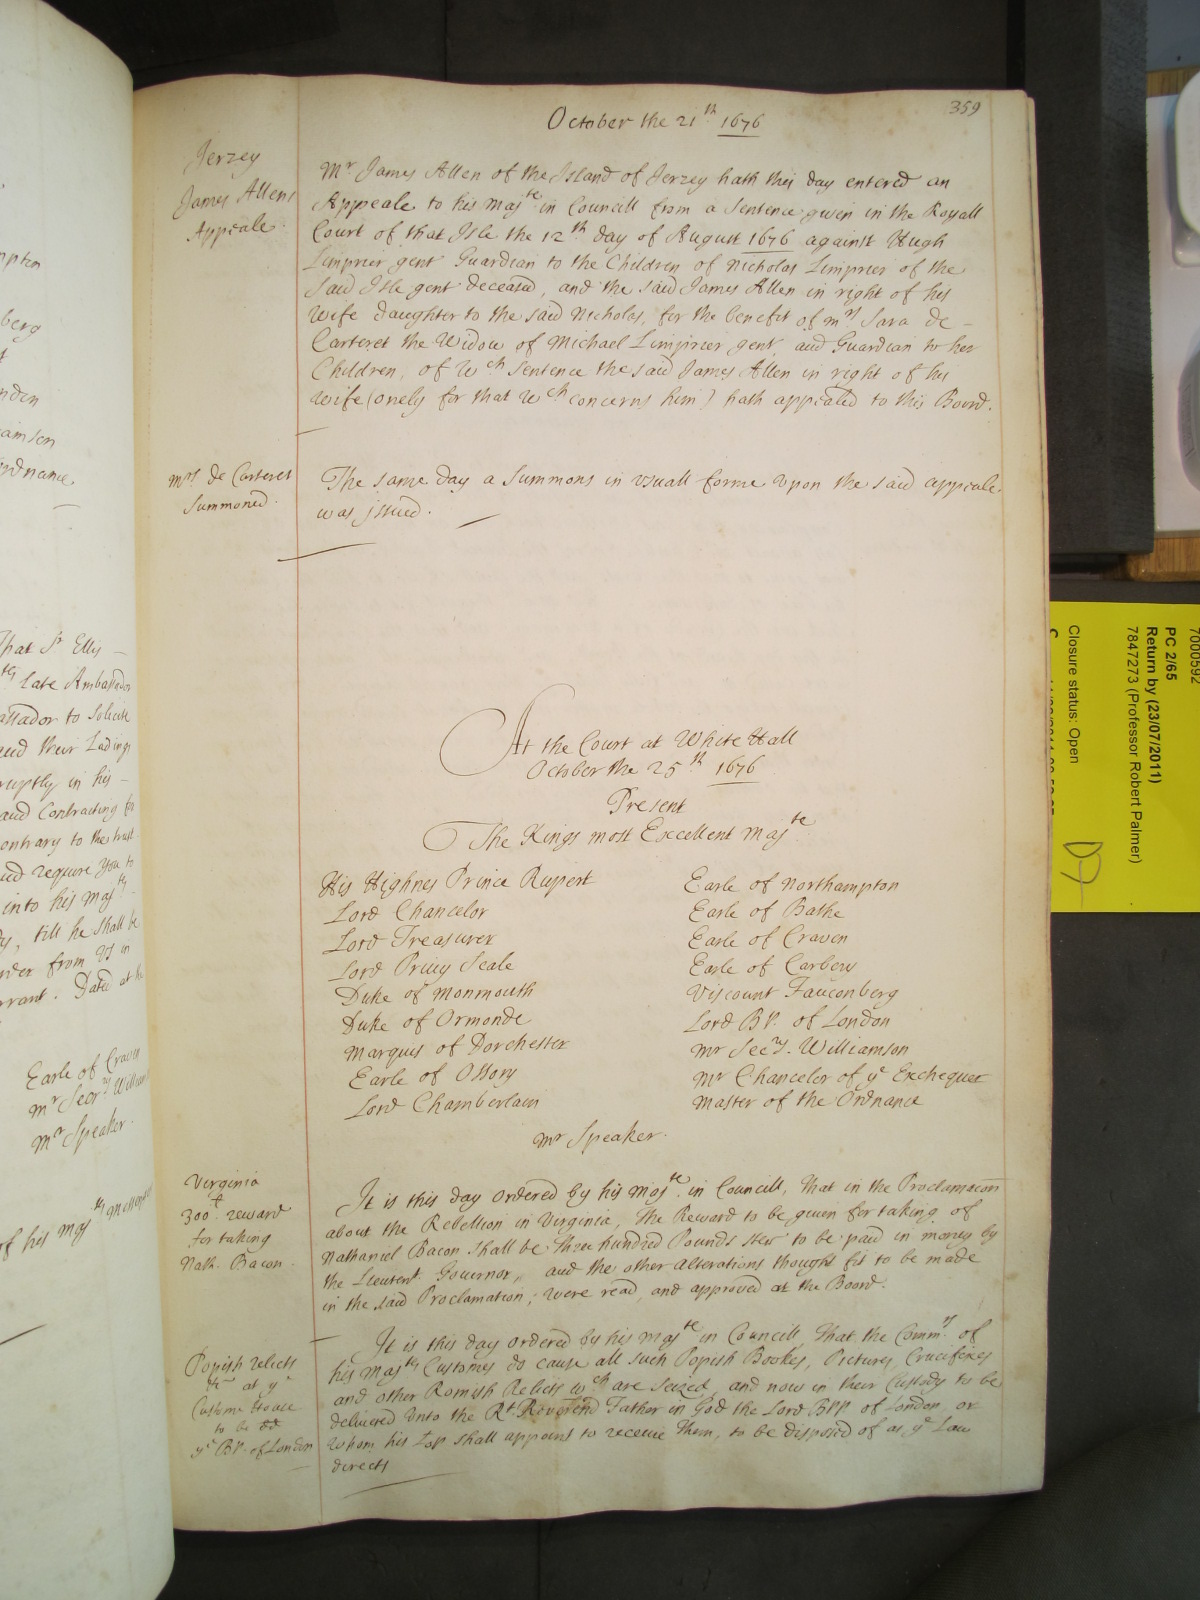 359
October the 21th 1676
Jerzey
James Allens
Appeale.
Mr James Allen of the Island of Jerzey hath this day entered an
Appeale to his Majte in Councill from a Sentence given in the Royall
Court of that Isle the 12th day of August 1676 against Hugh
Limprier gent Guardian to the Children of Nicholas Limprier of the
said Isle gent deceased, and the said James Allen in right of his
Wife daughter to the said Nicholas, for the benefit of mrs Sara de-
Carteret the Widow of Michael Limprier gent, and Guardian to her
Children, of wch Sentence the said James Allen in right of his
wife (onely for that wch concerns him) hath appealed to this Board.
mrs de Carteret
Summoned.
The same day a Summons in usuall forme upon the said appeale
was issued.
At the Court at White Hall
October the 25th 1676
Present
The Kings most Excellent Majte
His Highnes Prince Rupert
Lord Chancelor
Lord Treasurer
Lord Privy Seale
Duke of Monmouth
Duke of Ormonde
Marquis of Dorchester
Earle of Ossory
Lord Chamberlain
Earle of Northampton
Earle of Bathe
Earle of Craven
Earle of Carbery
Viscount Fauconberg
Lord BP. of London
Mr Secry. Williamson
Mr Chancelor of ye Exchequer
Master of the Ordnance
Mr Speaker.
Virginia
300£ reward
for taking
Nath. Bacon.
It is this day ordered by his Majte. in Councill, that in the Proclamacon
about the Rebellion in Virginia, the Reward to be given for taking of
Nathaniel Bacon shall be three hundred Pounds ster to be paid in money by
the Lieutent. Governor, and the other alterations thought fit to be made
in the said Proclamation, were read, and approved at the Board.
Popish relicts
&c at ye
Custome House
to be dd
ye BP. of London
It is this day ordered by his Majte in Councill, That the Commrs of
his Majtys Customes do cause all such Popish Bookes, Pictures, Crucifixes
and other Romish Relicts wch are seized, and now in their Custody to be
delivered unto the Rt. Reverend Father in God the Lord BPP of London, or
whom his Lop shall appoint to receive them, to be disposed of as ye Law
directs
mpton
berg
nden
amson
rdnance
that Sr Ellis -
late Ambassador
assador to solicite
and their Lading
ruptly in his -
and Contracting for
ontrary to the trust
and require you to
into his Majtys
y, till he shall be
order from Us in
rrant. Dated at the
Earle of Craven
Mr Secry Williamson
Mr Speaker.
of his Majtys
7000592
PC 2/65
Return by (23/07/2011)
7847273 (Professor Robert Palmer)
Closure status: Open